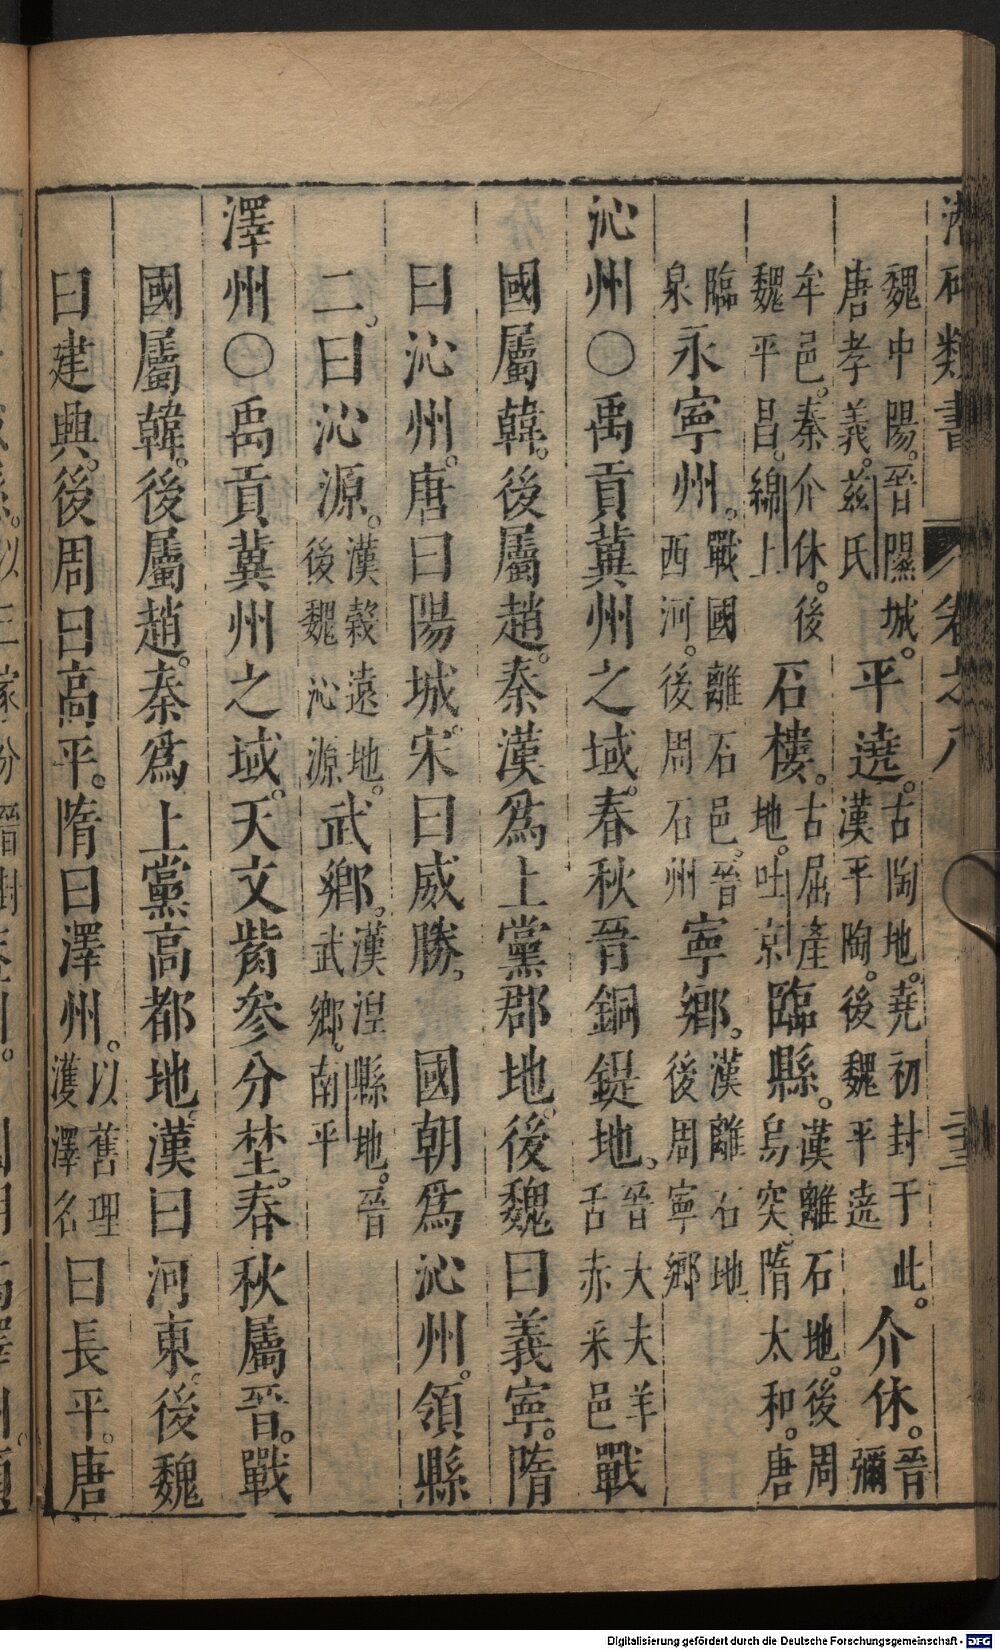 類書 卷之八
魏中陽。晉隰城。唐孝義。茲氏平遙。古陶地。堯初封于此。漢平陶。後魏平遙介休。晉彌
牟邑。秦介休。後魏平昌。綿上石樓。古屈產地。吐京臨縣。漢離石地。後周烏突。隋太和。唐
臨泉永寧州。戰國離石邑。晉西河。後周石州寧鄉。漢離石地後周寧鄉
沁州〇禹貢冀州之域。春秋晉銅鍉地。晉大夫羊舌赤采邑戰
國屬韓。後屬趙。秦漢爲上黨郡地。後魏曰義寧。隋
曰沁州。唐曰陽城。宋曰威勝。 國朝爲沁州。領縣
二。曰沁源。漢穀遠地。後魏沁源武鄉。漢涅縣地。晉武鄉。南平
澤州〇禹貢冀州之域。天文觜參分埜。春秋屬晉。戰
國屬韓。後屬趙。秦爲上黨高都地。漢曰河東。後魏
曰建興。後周曰高平。隋曰澤州。以舊理濩澤名曰長平。唐
Digitalisierung gefördert durch die Deutsche Forschungsgemeinschaft - DFG